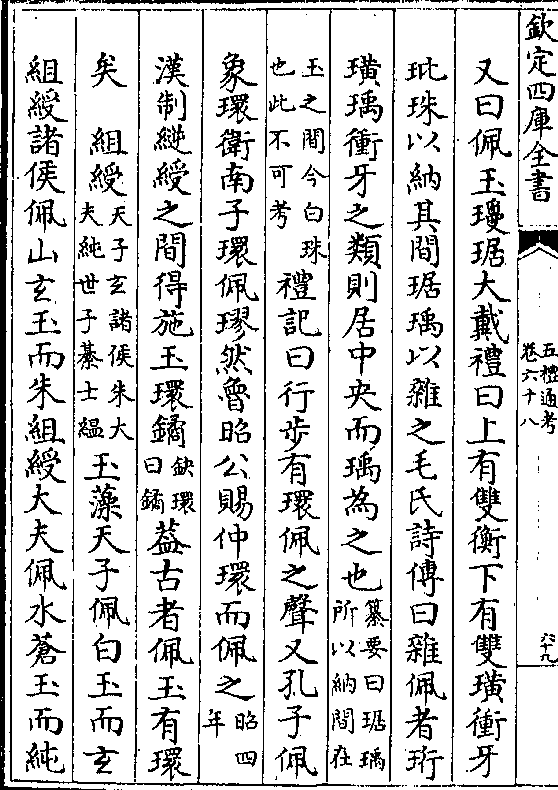 欽定四庫全書
五禮通考
卷六十八
六十九
又曰佩玉瓊琚大戴禮曰上有雙衡下有雙璜衝牙
玭珠以納其間琚瑀以雜之毛氏詩傳曰雜佩者珩
璜瑀衝牙之類則居中央而瑀為之也纂要曰琚瑀所以納間在
玉之間今白珠也此不可考禮記曰行步有環佩之聲又孔子佩
象環衛南子環佩璆然魯昭公賜仲環而佩之昭四年
漢制縌綬之間得施玉環鐍缺環曰鐍葢古者佩玉有環
矣　組綬天子玄諸侯朱大夫純世子綦士縕玉藻天子佩白玉而玄
組綬諸侯佩山玄玉而朱組綬大夫佩水蒼玉而純